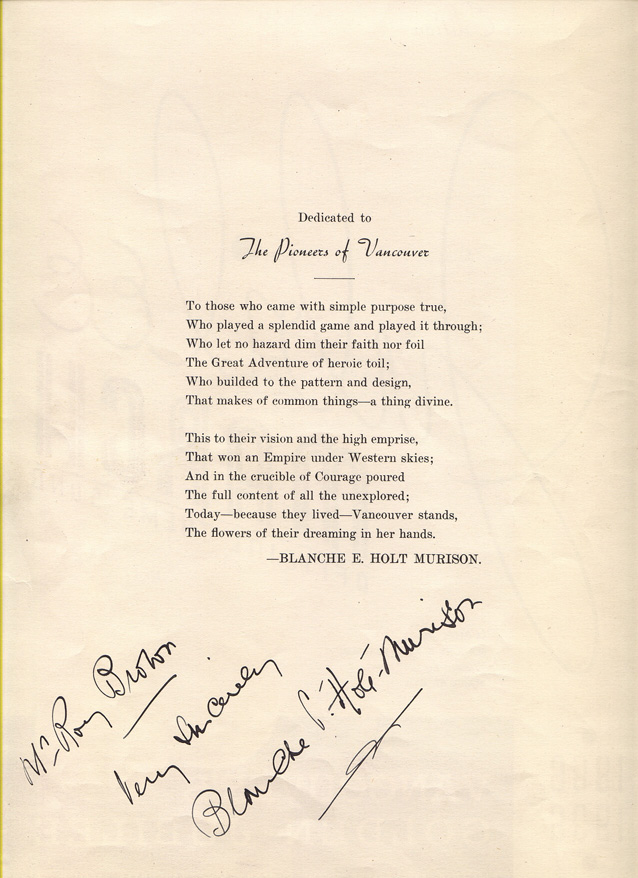 Dedicated to
The Pioneers of Vancouver
To those who came with simple purpose true,
Who played a splendid game and played it through;
Who let no hazard dim their faith nor foil
The Great Adventure of heroic toil;
Who builded to the pattern and design,
That makes of common things—a thing divine.
This to their vision and the high emprise,
That won an Empire under Western skies;
And in the crucible of Courage poured
The full content of all the unexplored;
Today—because they lived—Vancouver stands,
The flowers of their dreaming in her hands.
—BLANCHE E. HOLT MURISON.
Mr Roy Brown
Very Sincerely
Blanche E. Holt-Murison